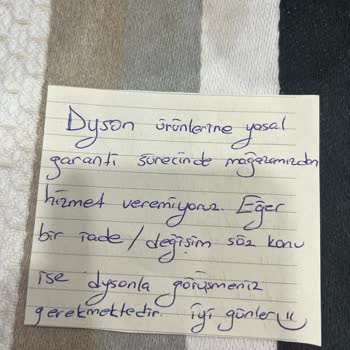 Dyson ürünlerine yasal
garanti sürecinde mağazamızdan
hizmet veremiyoruz. Eğer
bir iade/değişim söz konu
ise dysonla görüşmeniz
gerekmektedir. iyi günler